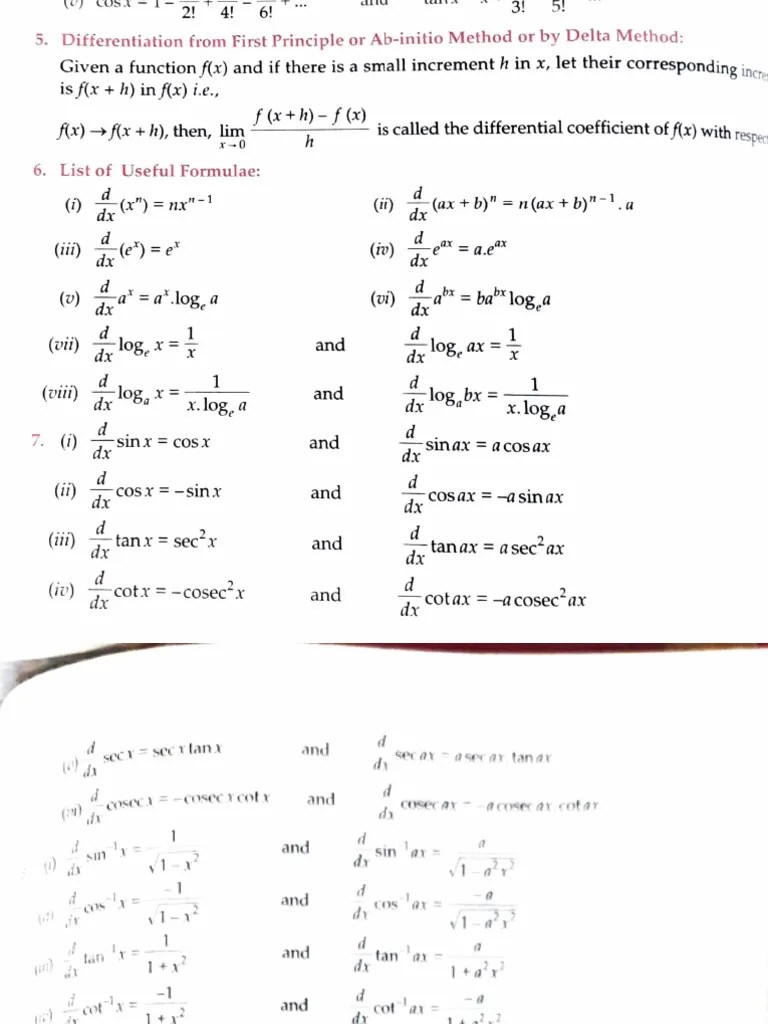 (v) cos x = 1 − /2! + /4! − /6! + ... and tan x 3! 5!
5. Differentiation from First Principle or Ab-initio Method or by Delta Method:
Given a function f(x) and if there is a small increment h in x, let their corresponding
is f(x + h) in f(x) i.e.,
f(x) → f(x + h), then, lim x→0 (f (x + h) – f (x))/h is called the differential coefficient of f(x) with
6. List of Useful Formulae:
(i) d/dx (xⁿ) = nxⁿ⁻¹ (ii) d/dx (ax + b)ⁿ = n (ax + b)ⁿ⁻¹ . a
(iii) d/dx (eˣ) = eˣ (iv) d/dx e^{ax} = a.e^{ax}
(v) d/dx aˣ = aˣ.logₑ a (vi) d/dx a^{bx} = ba^{bx} logₑa
(vii) d/dx logₑ x = 1/x and d/dx logₑ ax = 1/x
(viii) d/dx logₐ x = 1/(x. logₑ a) and d/dx logₐ bx = 1/(x. logₑa)
7. (i) d/dx sin x = cos x and d/dx sin ax = a cos ax
(ii) d/dx cos x = –sin x and d/dx cos ax = –a sin ax
(iii) d/dx tan x = sec² x and d/dx tan ax = a sec² ax
(iv) d/dx cot x = –cosec² x and d/dx cot ax = –a cosec² ax
(v) d/dx sec x = sec x tan x and d/dx sec ax = a sec ax tan ax
(vi) d/dx cosec x = –cosec x cot x and d/dx cosec ax = –a cosec ax cot ax
(i) d/dx sin⁻¹ x = 1/√(1 – x²) and d/dx sin⁻¹ ax = a/√(1 – a²x²)
(ii) d/dx cos⁻¹ x = –1/√(1 – x²) and d/dx cos⁻¹ ax = –a/√(1 – a²x²)
(iii) d/dx tan⁻¹ x = 1/(1 + x²) and d/dx tan⁻¹ ax = a/(1 + a²x²)
(iv) d/dx cot⁻¹ x = –1/(1 + x²) and d/dx cot⁻¹ ax = –a/(1 + a²x²)